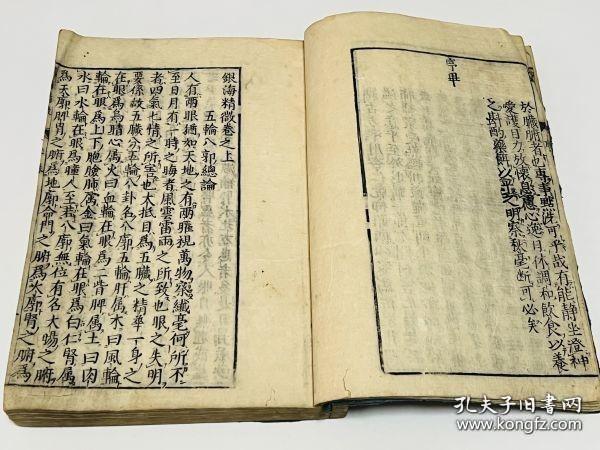 於臟腑者也專事點洗可乎哉有能靜坐澄神
愛護目力放懷息慮心逸目休調和飲食以養
之斟酌藥餌以平之明察秋毫斷可必矣
序畢
銀海精微卷之上
五輪八郭總論
人有兩眼猶如天地之有兩曜視萬物察纖毫何所不
至日月有一時之晦者風雲雷雨之所致也眼之失明
者四氣七情之所害也大抵目爲五臟之精華一身之
要係故五臟分五輪八卦名八廓五輪肝屬木曰風輪
在眼爲烏睛心屬火曰血輪在眼爲二眥脾屬土曰肉
輪在眼爲上下胞瞼肺屬金曰氣輪在眼爲白仁腎屬
水曰水輪在眼爲瞳人至若八廓無位有名大腸之腑
爲天廓脾胃之腑爲地廓命門之腑爲火廓腎之腑爲
孔夫子旧书网
www.kongfz.com